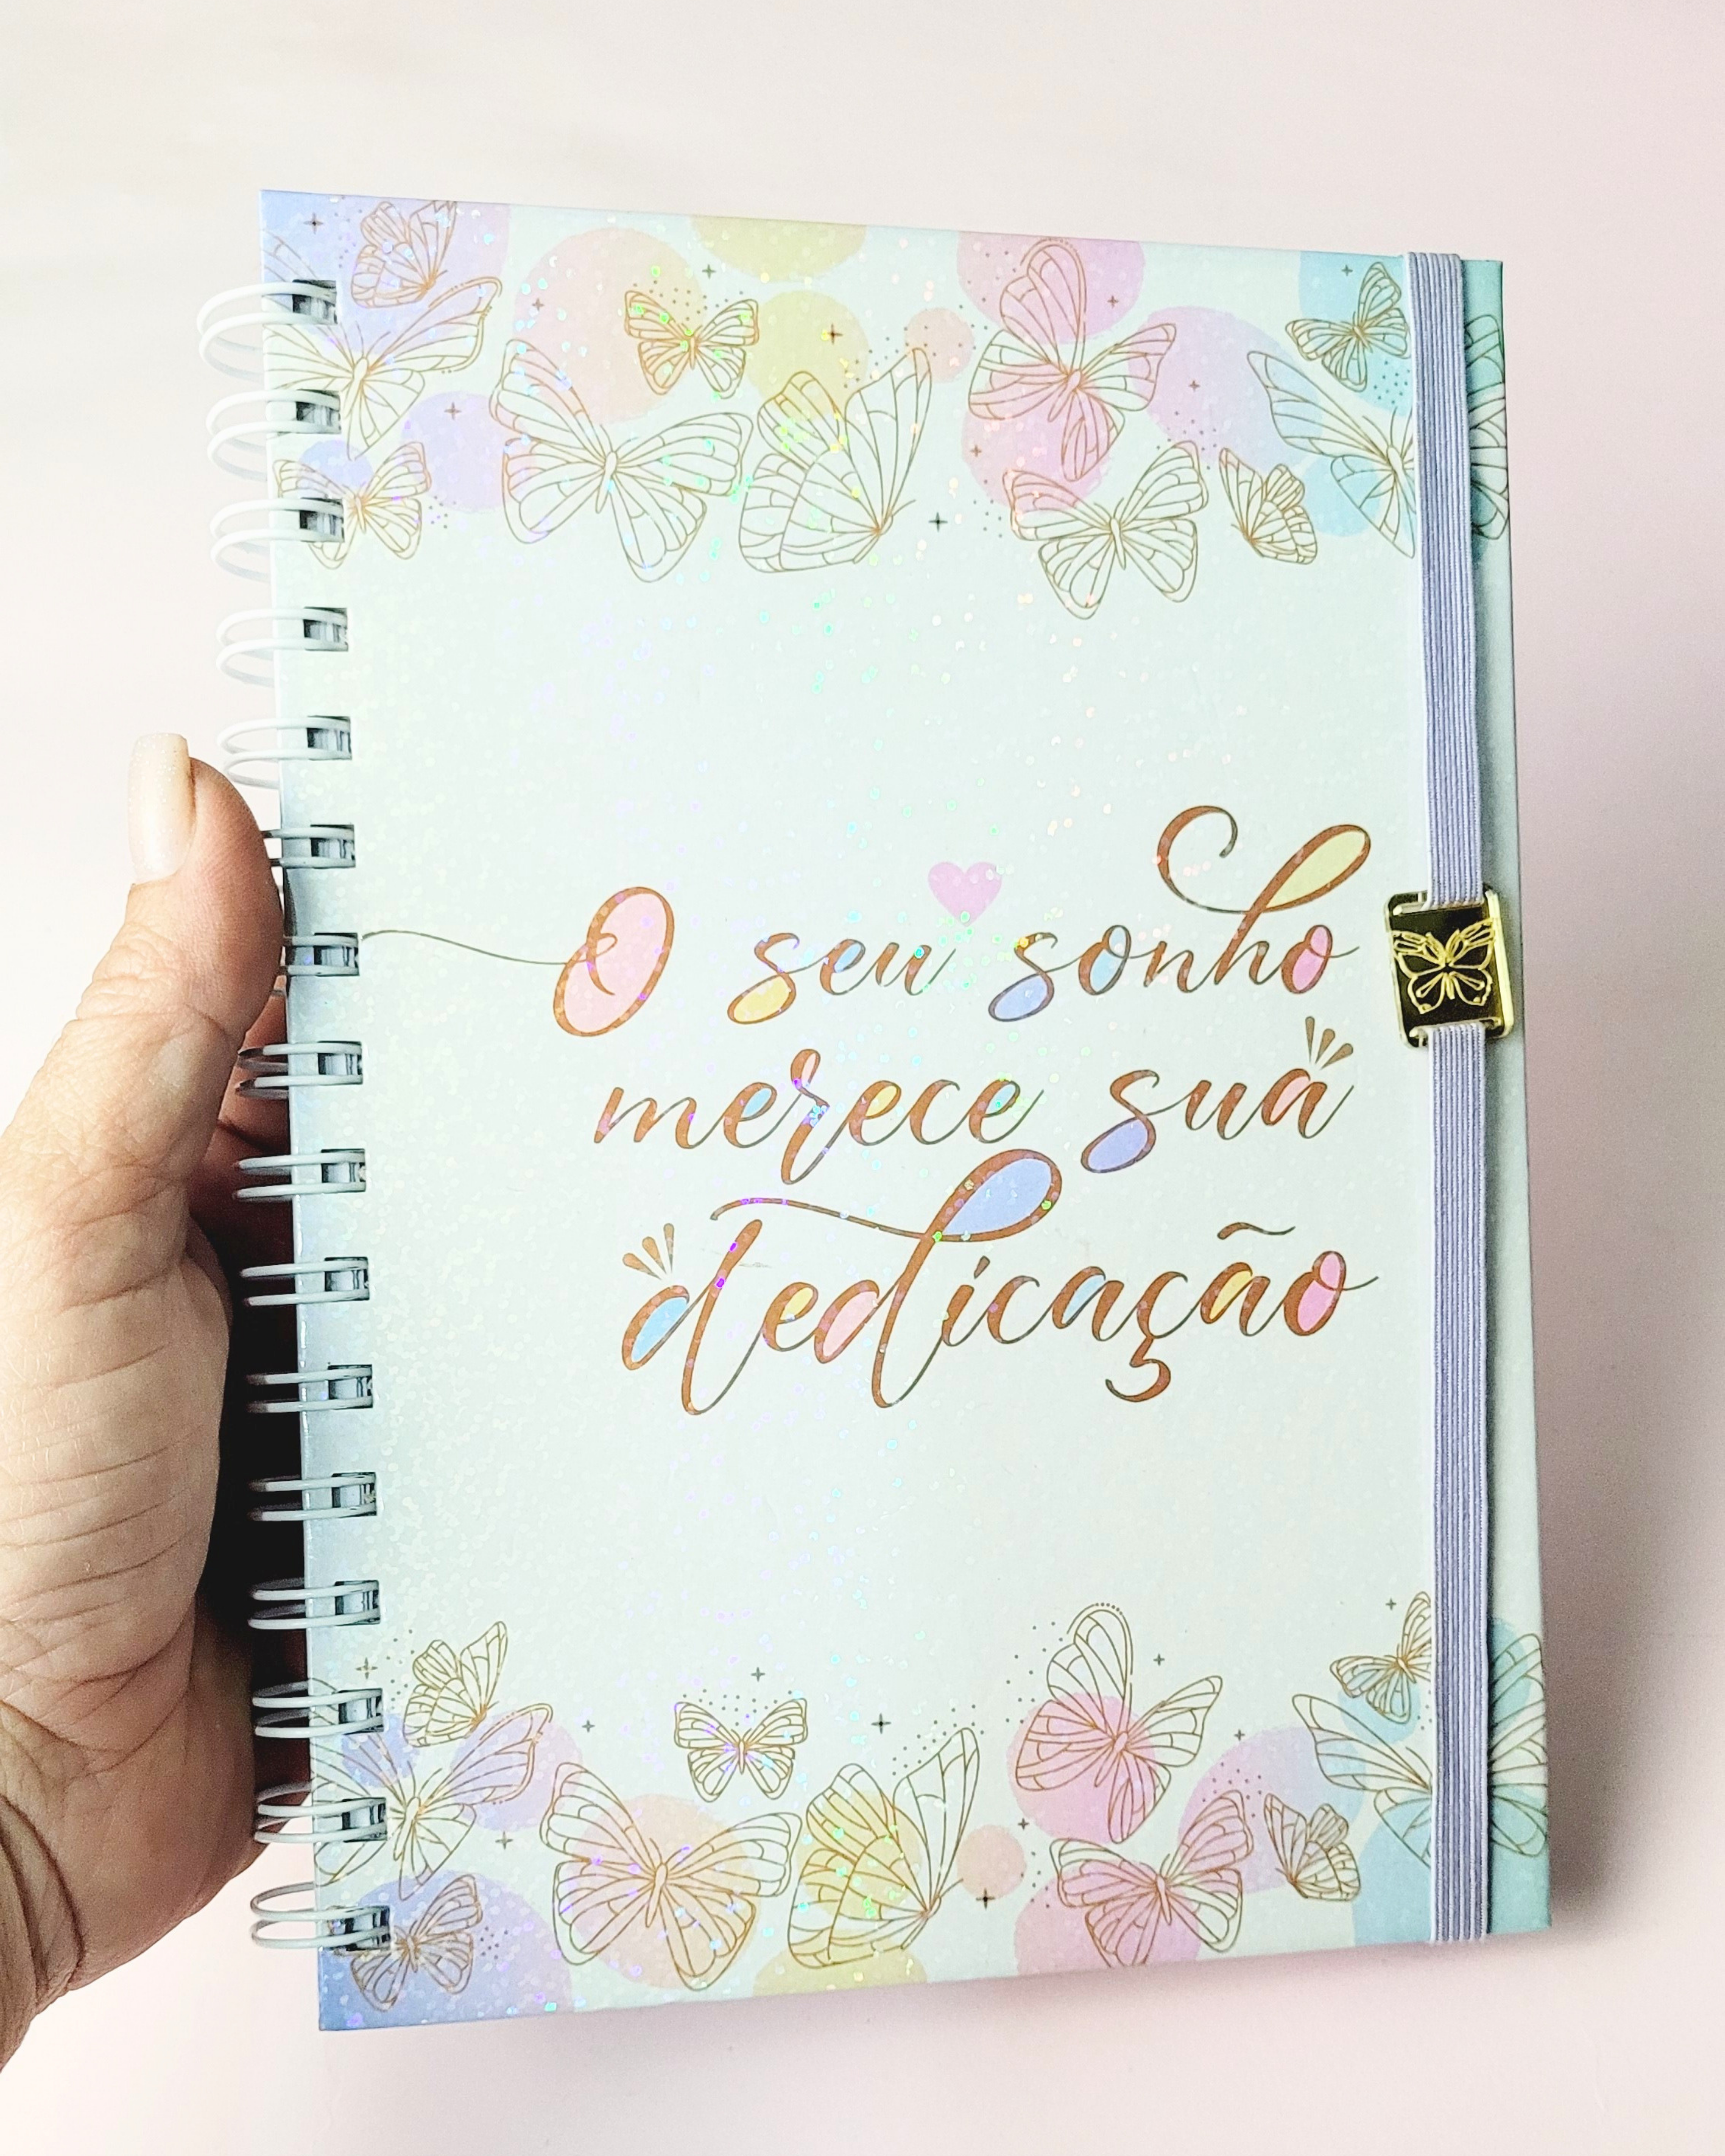 O seu sonho
merece sua
dedicação